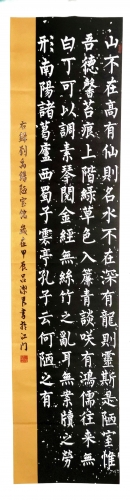 山不在高有仙則名水不在深有龍則靈斯是陋室惟
吾德馨苔痕上階緑草色入簾青談咲有鴻儒往來無
白丁可以調素琴閱金經無絲竹之亂耳無案牘之勞
形南陽諸葛廬西蜀子雲亭孔子云何陋之有
右録劉禹錫陋室銘 歲在甲辰 書於江门